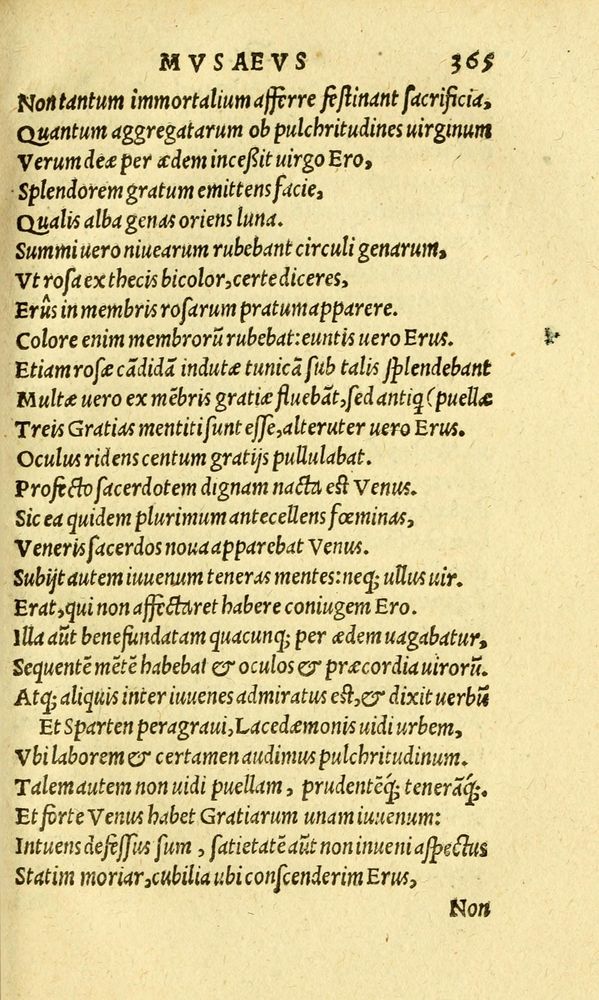 MVSAEVS 365
Non tantum immortalium afferre feſtinant ſacrificia,
Quantum aggregatarum ob pulchritudines uirginum
Verum deæ per ædem inceßit uirgo Ero,
Splendorem gratum emittens facie,
Qualis alba genas oriens luna.
Summi uero niuearum rubebant circuli genarum,
Vt roſa ex thecis bicolor, certe diceres,
Erûs in membris roſarum pratum apparere.
Colore enim membrorũ rubebat: euntis uero Erus.
Etiam roſæ cãdidã indutæ tunicã ſub talis ſplendebant
Multæ uero ex mẽbris gratiæ fluebãt, ſed antiq́ (puellæ
Treis Gratias mentiti ſunt eſſe, alteruter uero Erus.
Oculus ridens centum gratijs pullulabat.
Profecto ſacerdotem dignam nacta eſt Venus.
Sic ea quidem plurimum antecellens fœminas,
Veneris ſacerdos noua apparebat Venus.
Subijt autem iuuenum teneras mentes: neq; ullus uir.
Erat, qui non affectaret habere coniugem Ero.
Illa aũt bene fundatam quacunq; per ædem uagabatur,
Sequentẽ mẽtẽ habebat & oculos & præcordia uirorũ.
Atq; aliquis inter iuuenes admiratus eſt, & dixit uerbũ
Et Sparten peragraui, Lacedæmonis uidi urbem,
Vbi laborem & certamen audimus pulchritudinum.
Talem autem non uidi puellam, prudentẽq́; tenerãq́;.
Et forte Venus habet Gratiarum unam iuuenum:
Intuens defeſſus ſum, ſatietatẽ aũt non inueni aſpectus
Statim moriar, cubilia ubi conſcenderim Erus,
Non